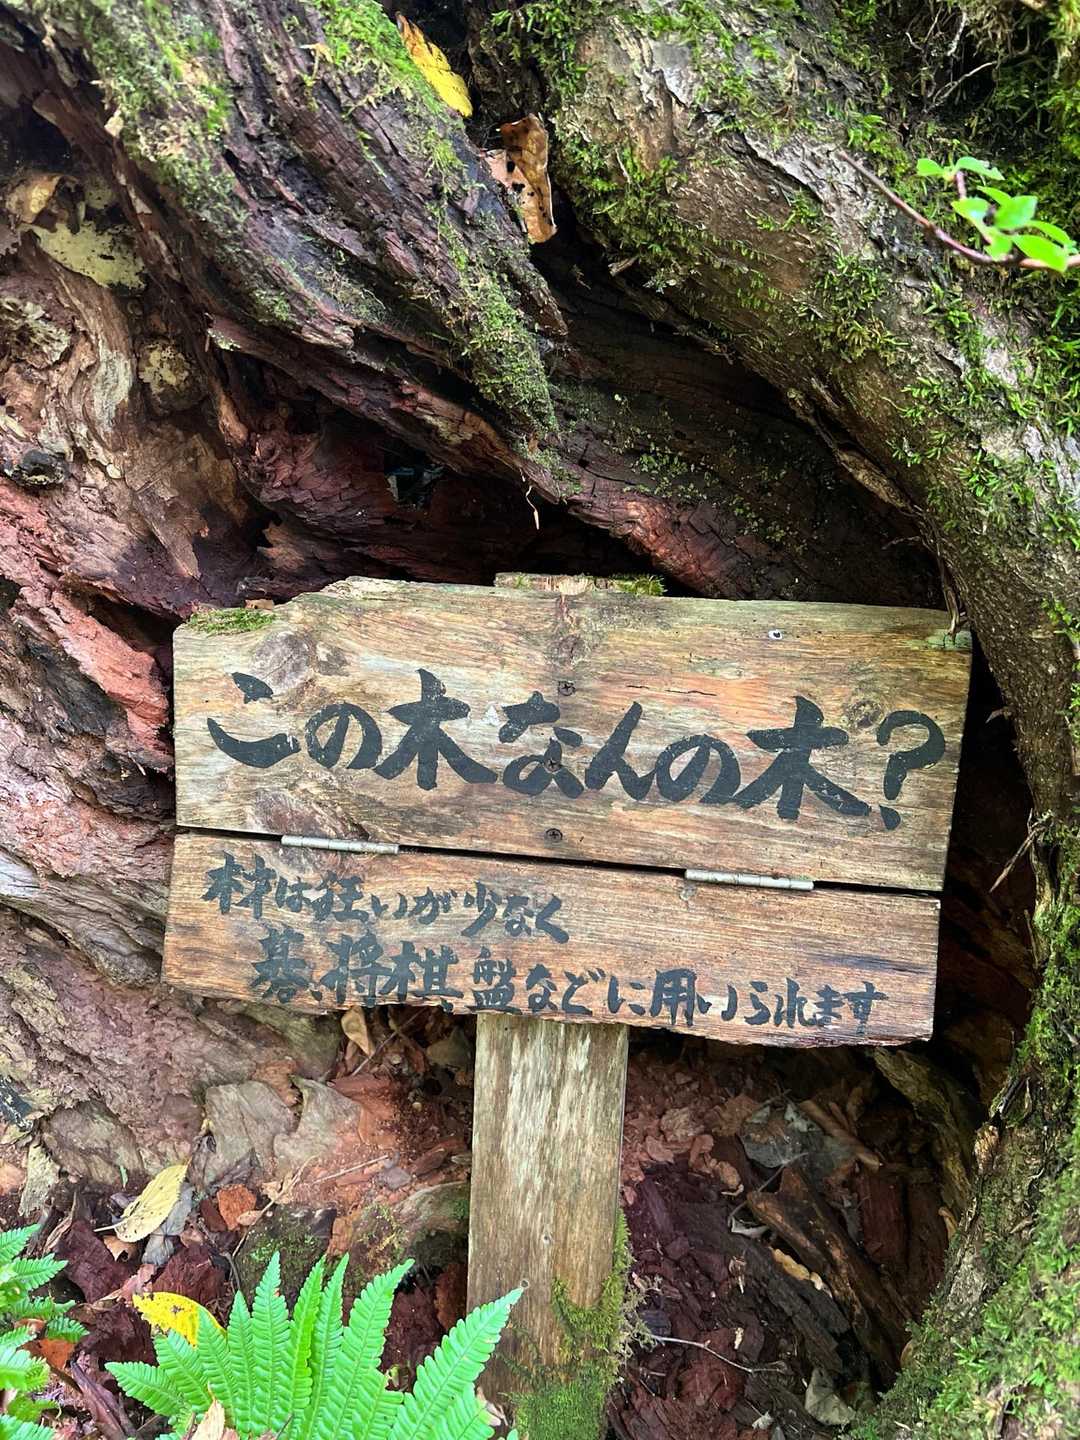 この木なんの木?
材は狂いが少なく
碁、将棋、盤などに用いられます